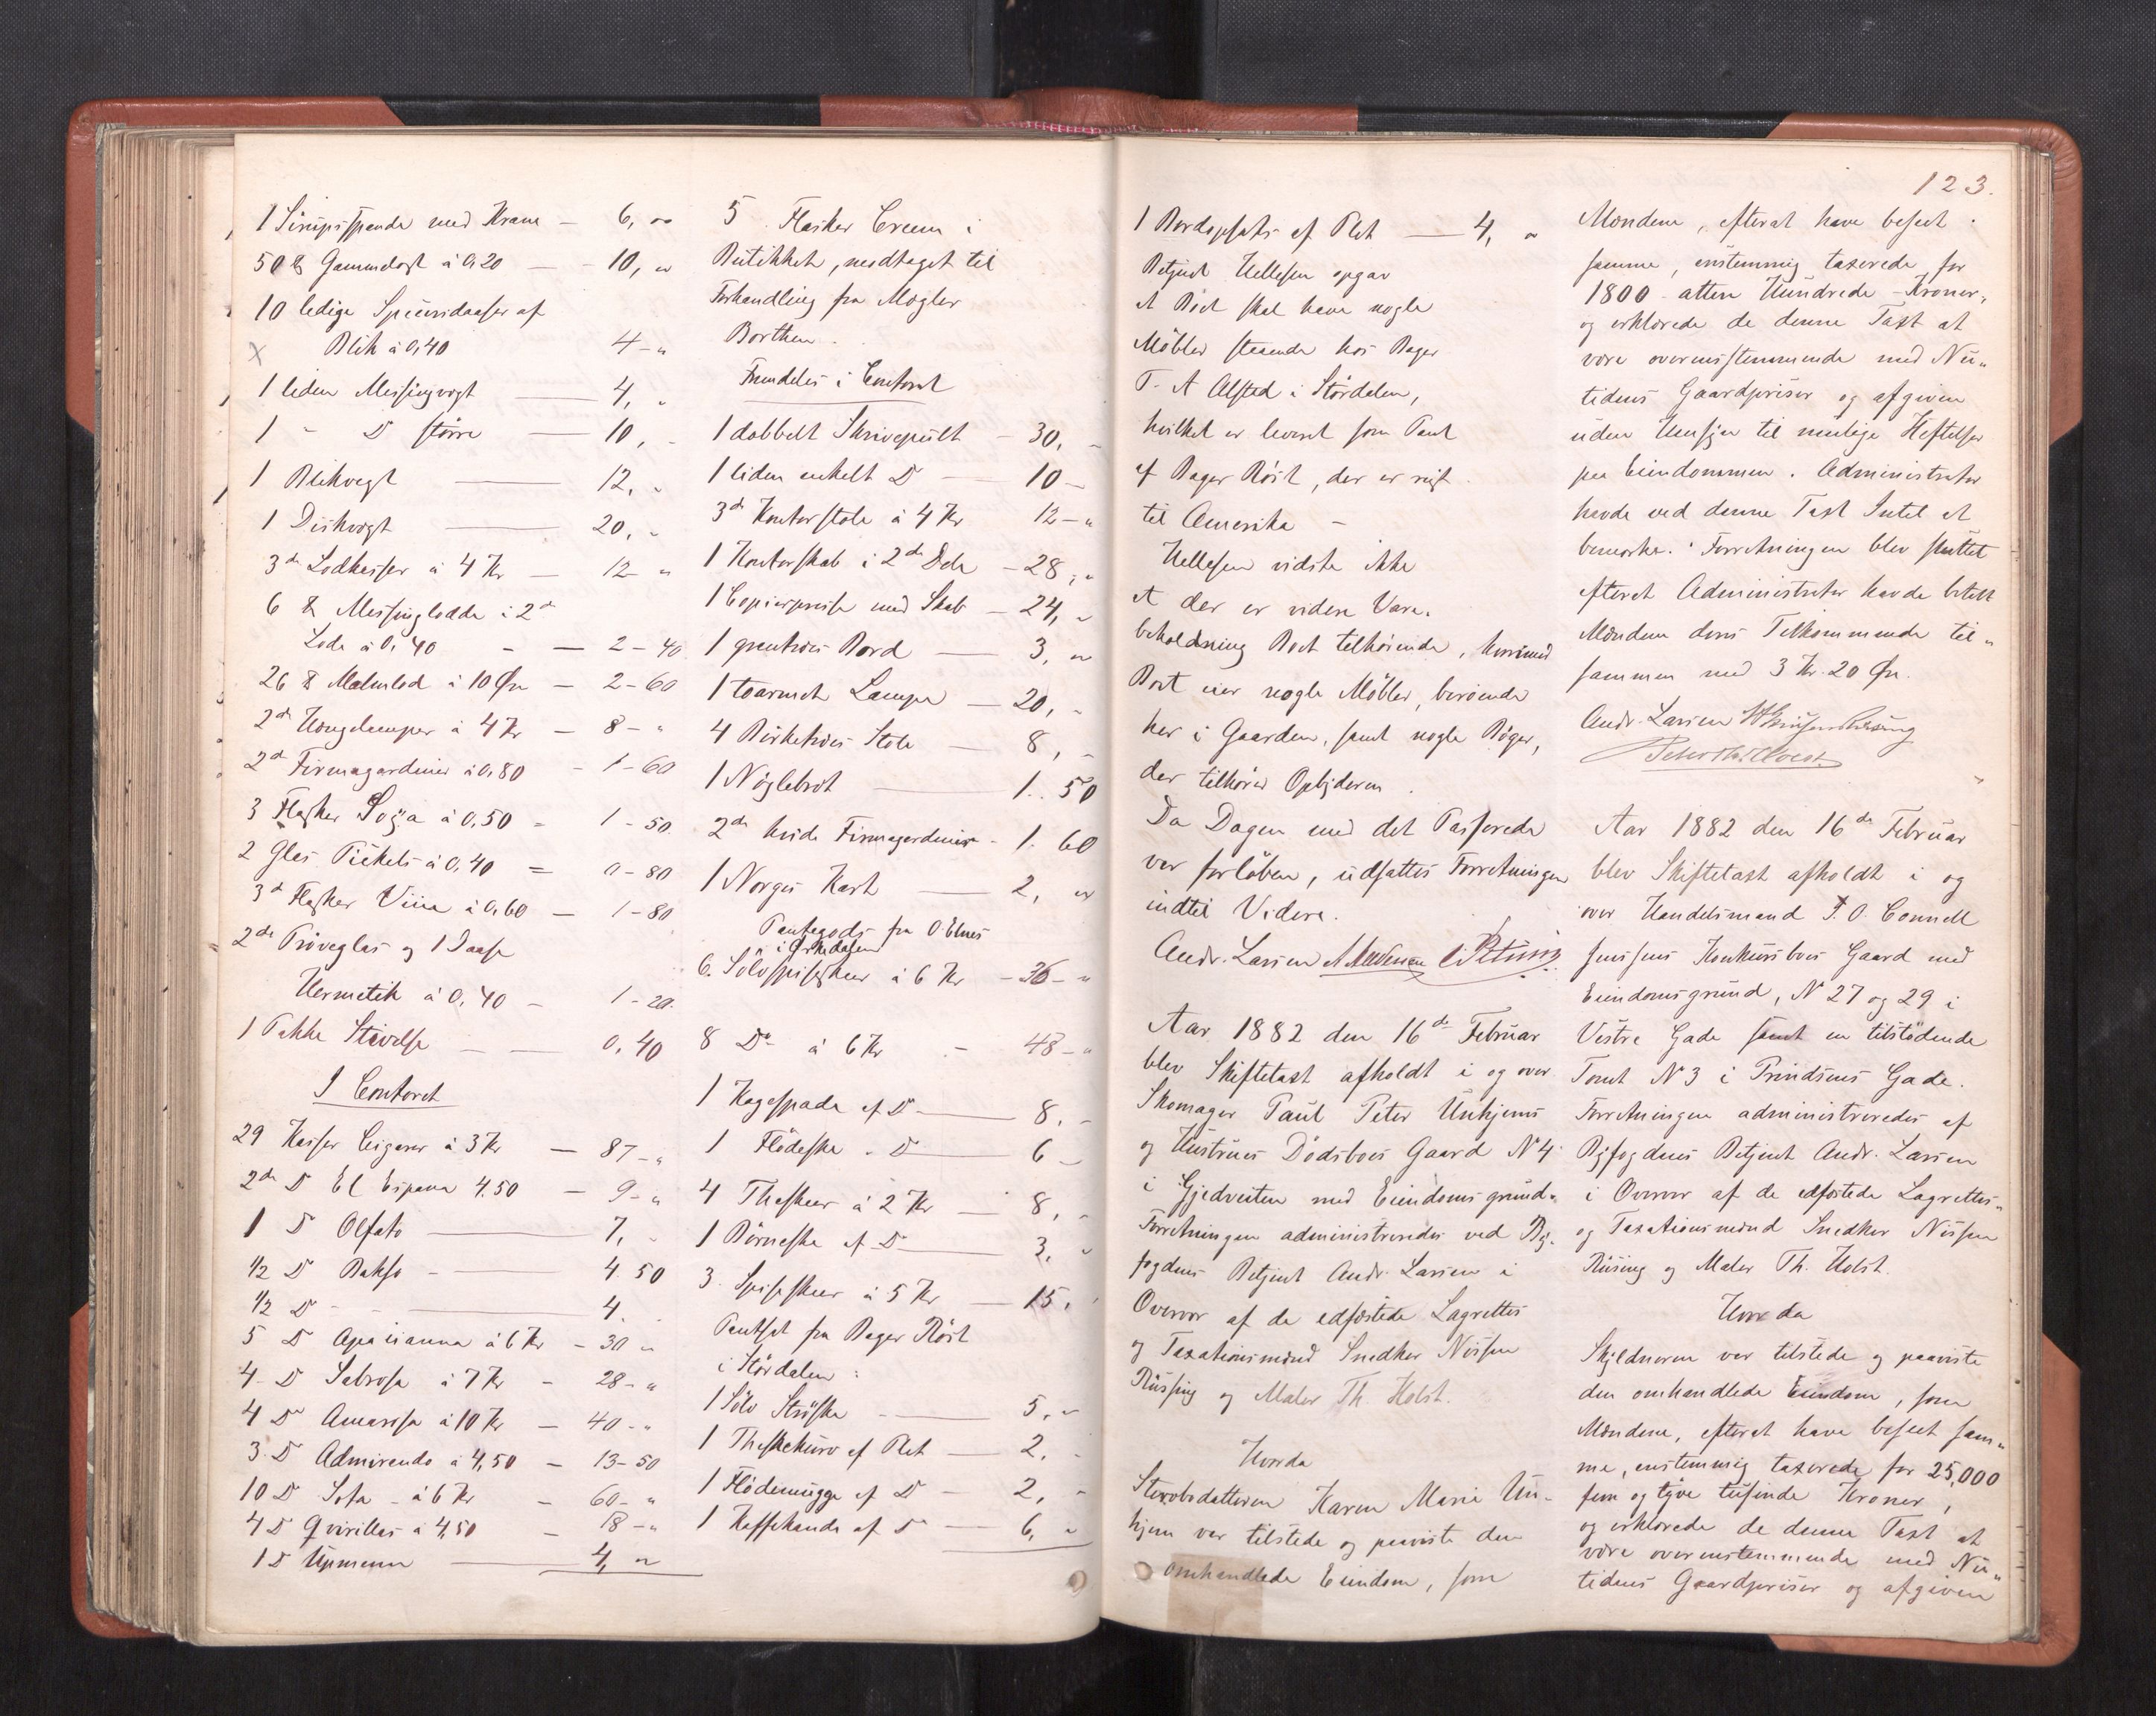 1 Sirupsspande med Krane – 6, "
50 ℔ Gammelost à 0,20 – 10, "
10 ledige af
Blik à 0,40 4 – "
1 liden Messingvegt 4, "
1 – D større 10, "
1 Blikvegt 12, "
1 Diskvegt 20, "
3de Lodkasser à 4 Kr – 12 – "
6 ℔ Messinglodde i 2de
Lode à 0,40 – 2 – 40
26 ℔ Malmlod à 10 Øre – 2 – 60
2de Hængelamper à 4 Kr – 8 – "
2de Firmagardiner à 0,80 – 1 – 60
3 Flasker Soja à 0,50 – 1 – 50
2 Glas Pickels à 0,40 = 0 – 80
3de Flasker Viin à 0,60 – 1 – 80
2de Prøveglas og 1 Daase
Hermetik à 0,40 – 1 – 20.
1 Pakke Stivelse – 0,40
I Contoret
29 Kasser Cigarer à 3 Kr – 87 – "
2de D El Espana 4.50 – 9 – "
1 D Olfato 7, "
1/2 D 4.50
1/2 D – 4.
5 D à 6 Kr – 30 "
4 D Sabrosa à 7 Kr – 28 – "
4 D à 10 Kr – 40 – "
3 D Admirendo à 4,50 – 13 – 50
10 D à 6 Kr – 60 – "
4 D à 4,50 – 18 – "
1 D Upmann 4, "
5 Flasker Creem i
Butikken, modtaget til
Forhandling fra Mægler
Borthen.
Fremdeles i Contoret
1 dobbelt Skrivepult – 30, –
1 liden enkelt D – 10 –
3de Kontorstole à 4 Kr 12 – "
1 Kontorskab i 2de Dele – 28, "
1 Copierpresse med Skab – 24, "
1 grantræes Bord – 3, "
1 toarmet Lampe – 20, "
4 Birketræes Stole – 8, –
1 Nøglebret – 1. 50
2de hvide Firmagardiner – 1. 60
1 Norges Kart – 2, "
Pantegods fra O. Elnes
i Orkedalen
6 Sølvspiseskeer à 6 Kr – 36 – "
8 Do à 6 Kr – 48 – "
1 Kagespade af D – 8, –
1 Flødeske – D – 6 –
4 Theskeer à 2 Kr – 8, –
1 Børneske af D – 3, "
3 Spiseskeer à 5 Kr – 15, "
Pantsat fra Bager Röst
i Stördalen:
1 Sölv Ströske – 5, "
1 Theskekurv af Plet – 2, –
1 Flödemugge af D – 2, –
1 Kaffekande af D – 6, "
123.
1 Bordopsats af Plet – 4, "
Betjent Hellesen opgav
at Boet skal have nogle
Möbler staaende hos Bager
T. A Alstad i Stördalen,
hvilket er leveret som Pant
af Bager Röst, der er reist
til Amerika –
Hellesen vidste ikke
at der er videre Vare-
beholdning Boet tilhörende, hvorimod
Boet eier nogle Möbler, beroende
her i Gaarden, samt nogle Böger,
der tilhörer Opbyderen.
Da Dagen med det Passerede
var forlöben, udsattes Forretningen
indtil Videre.
Andr. Larsen
Aar 1882 den 16de Februar
blev Skiftetaxt afholdt i og over
Skomager Paul Peter Unhjems
og Hustrues Dödsboes Gaard No 4
i Gjedveiten med Eiendomsgrund.
Forretningen administreredes ved By-
fogdens Betjent Andr. Larsen i
Overvær af de edfæstede Lagrettes
og Taxationsmænd Snedker Nissen
Rüssing og Maler Th. Holst.
Hvorda
Stervbodatteren Karen Marie Un-
hjem var tilstede og paaviste den
omhandlede Eiendom, som
Mændene, efterat have beseet
samme, enstemmig taxerede for
1800 – atten Hundrede – Kroner,
og erklærede de denne Taxt at
være overensstemmende med Nu„
tidens Gaardpriser og afgiven
uden Hensyn til mulige Heftelser
paa Eiendommen. Administrator
havde ved denne Taxt Intet at
bemærke. Forretningen blev sluttet
efterat Administrator havde betalt
Mændene deres Tilkommende til„
sammen med 3 Kr. 20 Öre.
Andr. Larsen
Aar 1882 den 16de Februar
blev Skiftetaxt afholdt i og
over Handelsmand T. O. Connell
Jenssens Konkursboes Gaard med
Eiendomsgrund, No 27 og 29 i
Vestre Gade samt en tilstödende
Tomt No 3 i Prindsens Gade.
Forretningen administreredes af
Byfogdens Betjent Andr. Larsen
i Overvær af de edfæstede Lagrettes„
og Taxationsmænd Snedker Nissen
Rüssing og Maler Th. Holst.
Hvorda
Skyldneren var tilstede og paaviste
den omhandlede Eiendom, som
Mændene, efterat have beseet sam„
me, enstemmig taxerede for 25,000
fem og tyve tusende Kroner,
og erklærede de denne Taxt at
være overenstemmende med Nu„
tidens Gaardpriser og afgiven